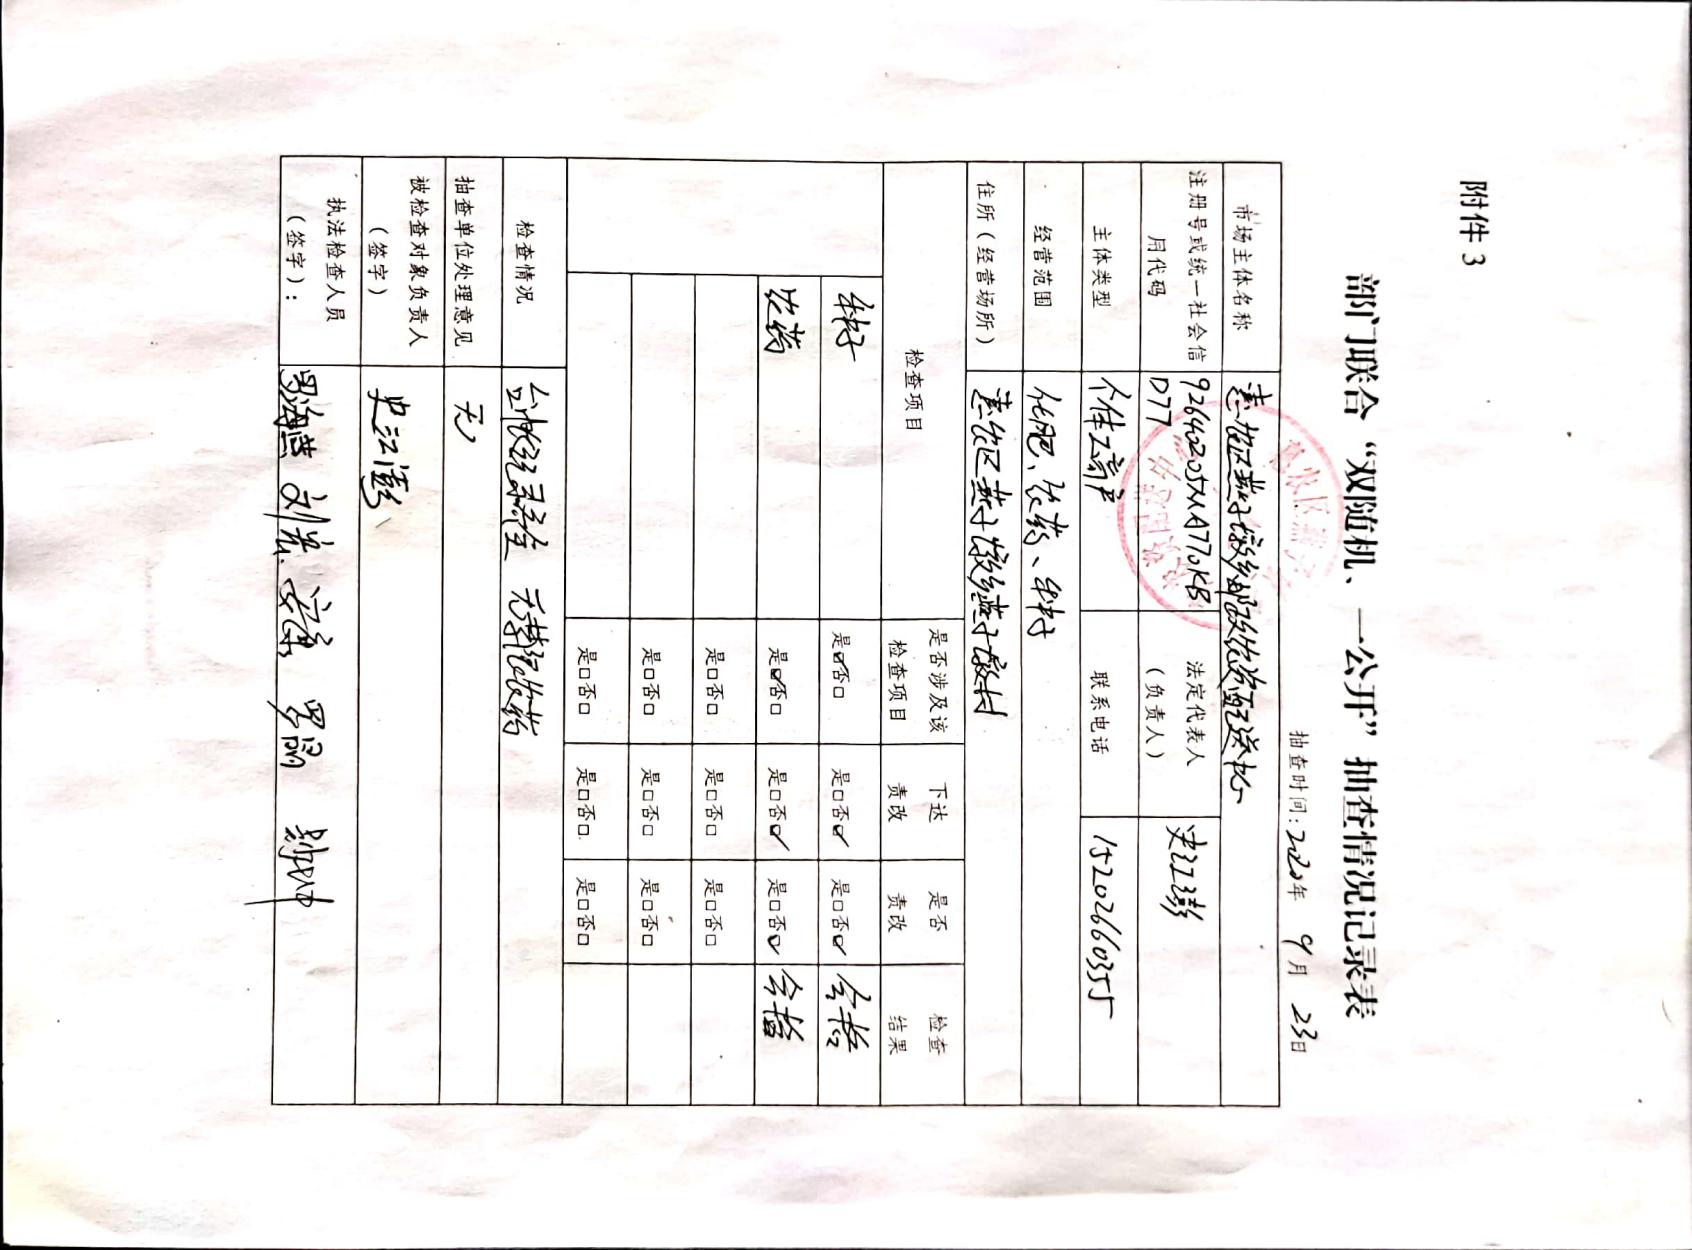 附件 3
部门联合“双随机、一公开”抽查情况记录表
抽查时间:2020年 9月 23日
市场主体名称 惠农区燕子墩乡邮政农资配送中心
注册号或统一社会信用代码 92640205MA770KB
D77
法定代表人
(负责人) 史江澎
主体类型 个体工商户 联系电话 15202660355
经营范围 化肥、农药、种子
住所(经营场所) 惠农区燕子墩乡燕子墩村
检查项目 是否涉及该检查项目 下达责改 是否责改 检查结果
种子 是☑否□ 是□否☑ 是□否☑ 合格
农药 是☑否□ 是□否☑ 是□否☑ 合格
是□否□ 是□否□ 是□否□
是□否□ 是□否□ 是□否□
是□否□ 是□否□ 是□否□
检查情况 台帐记录齐全 无禁限农药
抽查单位处理意见 无
被检查对象负责人
(签字) 史江澎
执法检查人员
(签字):